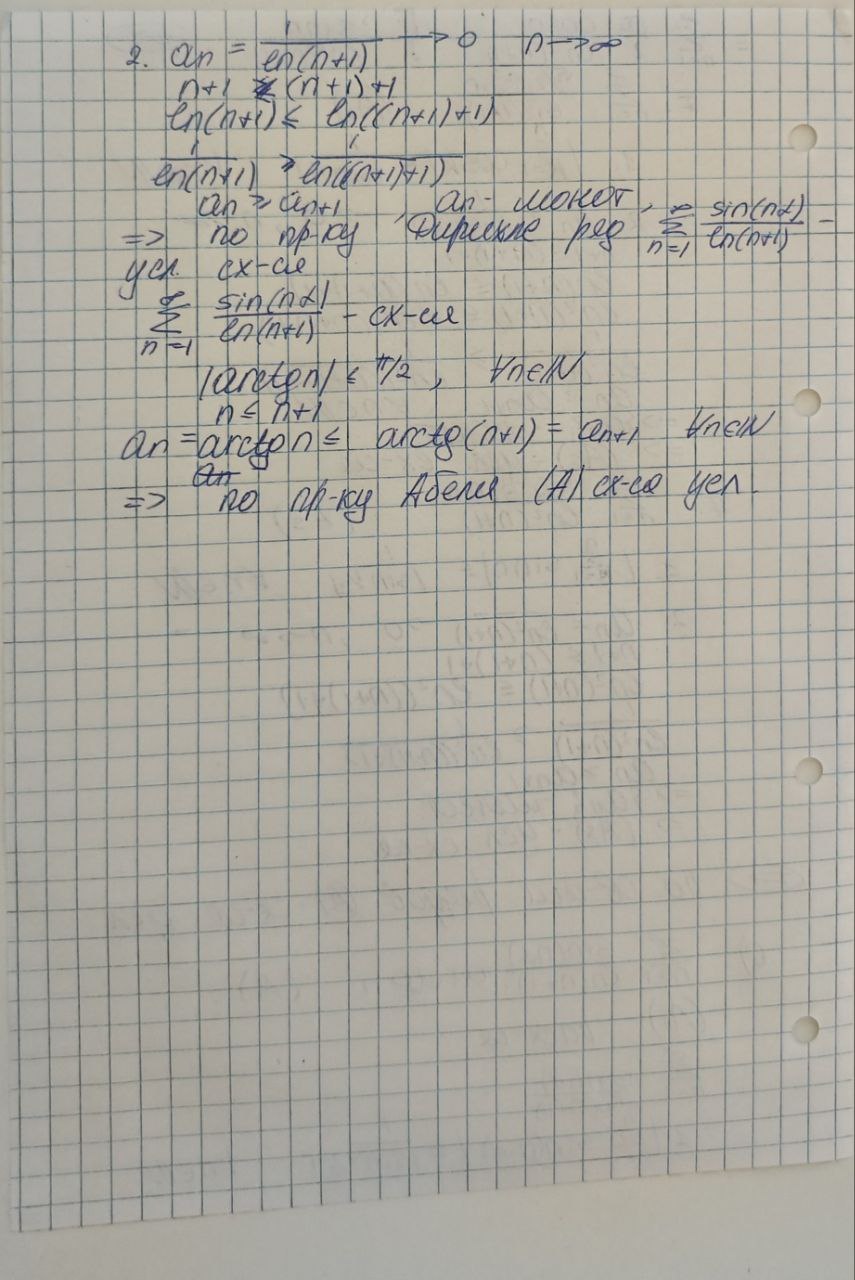 2. an = 1/ln(n+1) → 0 n → ∞
n+1 ≤ (n+1)+1
ln(n+1) ≤ ln((n+1)+1)
1/ln(n+1) ≥ 1/ln((n+1)+1)
an ≥ an+1, an - монот,
=> по пр-ку Дирихле ряд ∑_{n=1}^{∞} sin(nα)/ln(n+1) -
усл. сх-ся
∑_{n=1}^{∞} sin(nα)/ln(n+1) - сх-ся
|arctg n| ≤ π/2, ∀n∈N
n ≤ n+1
an = arctg n ≤ arctg(n+1) = an+1 ∀n∈N
an
=> по пр-ку Абеля (A) сх-ся усл.